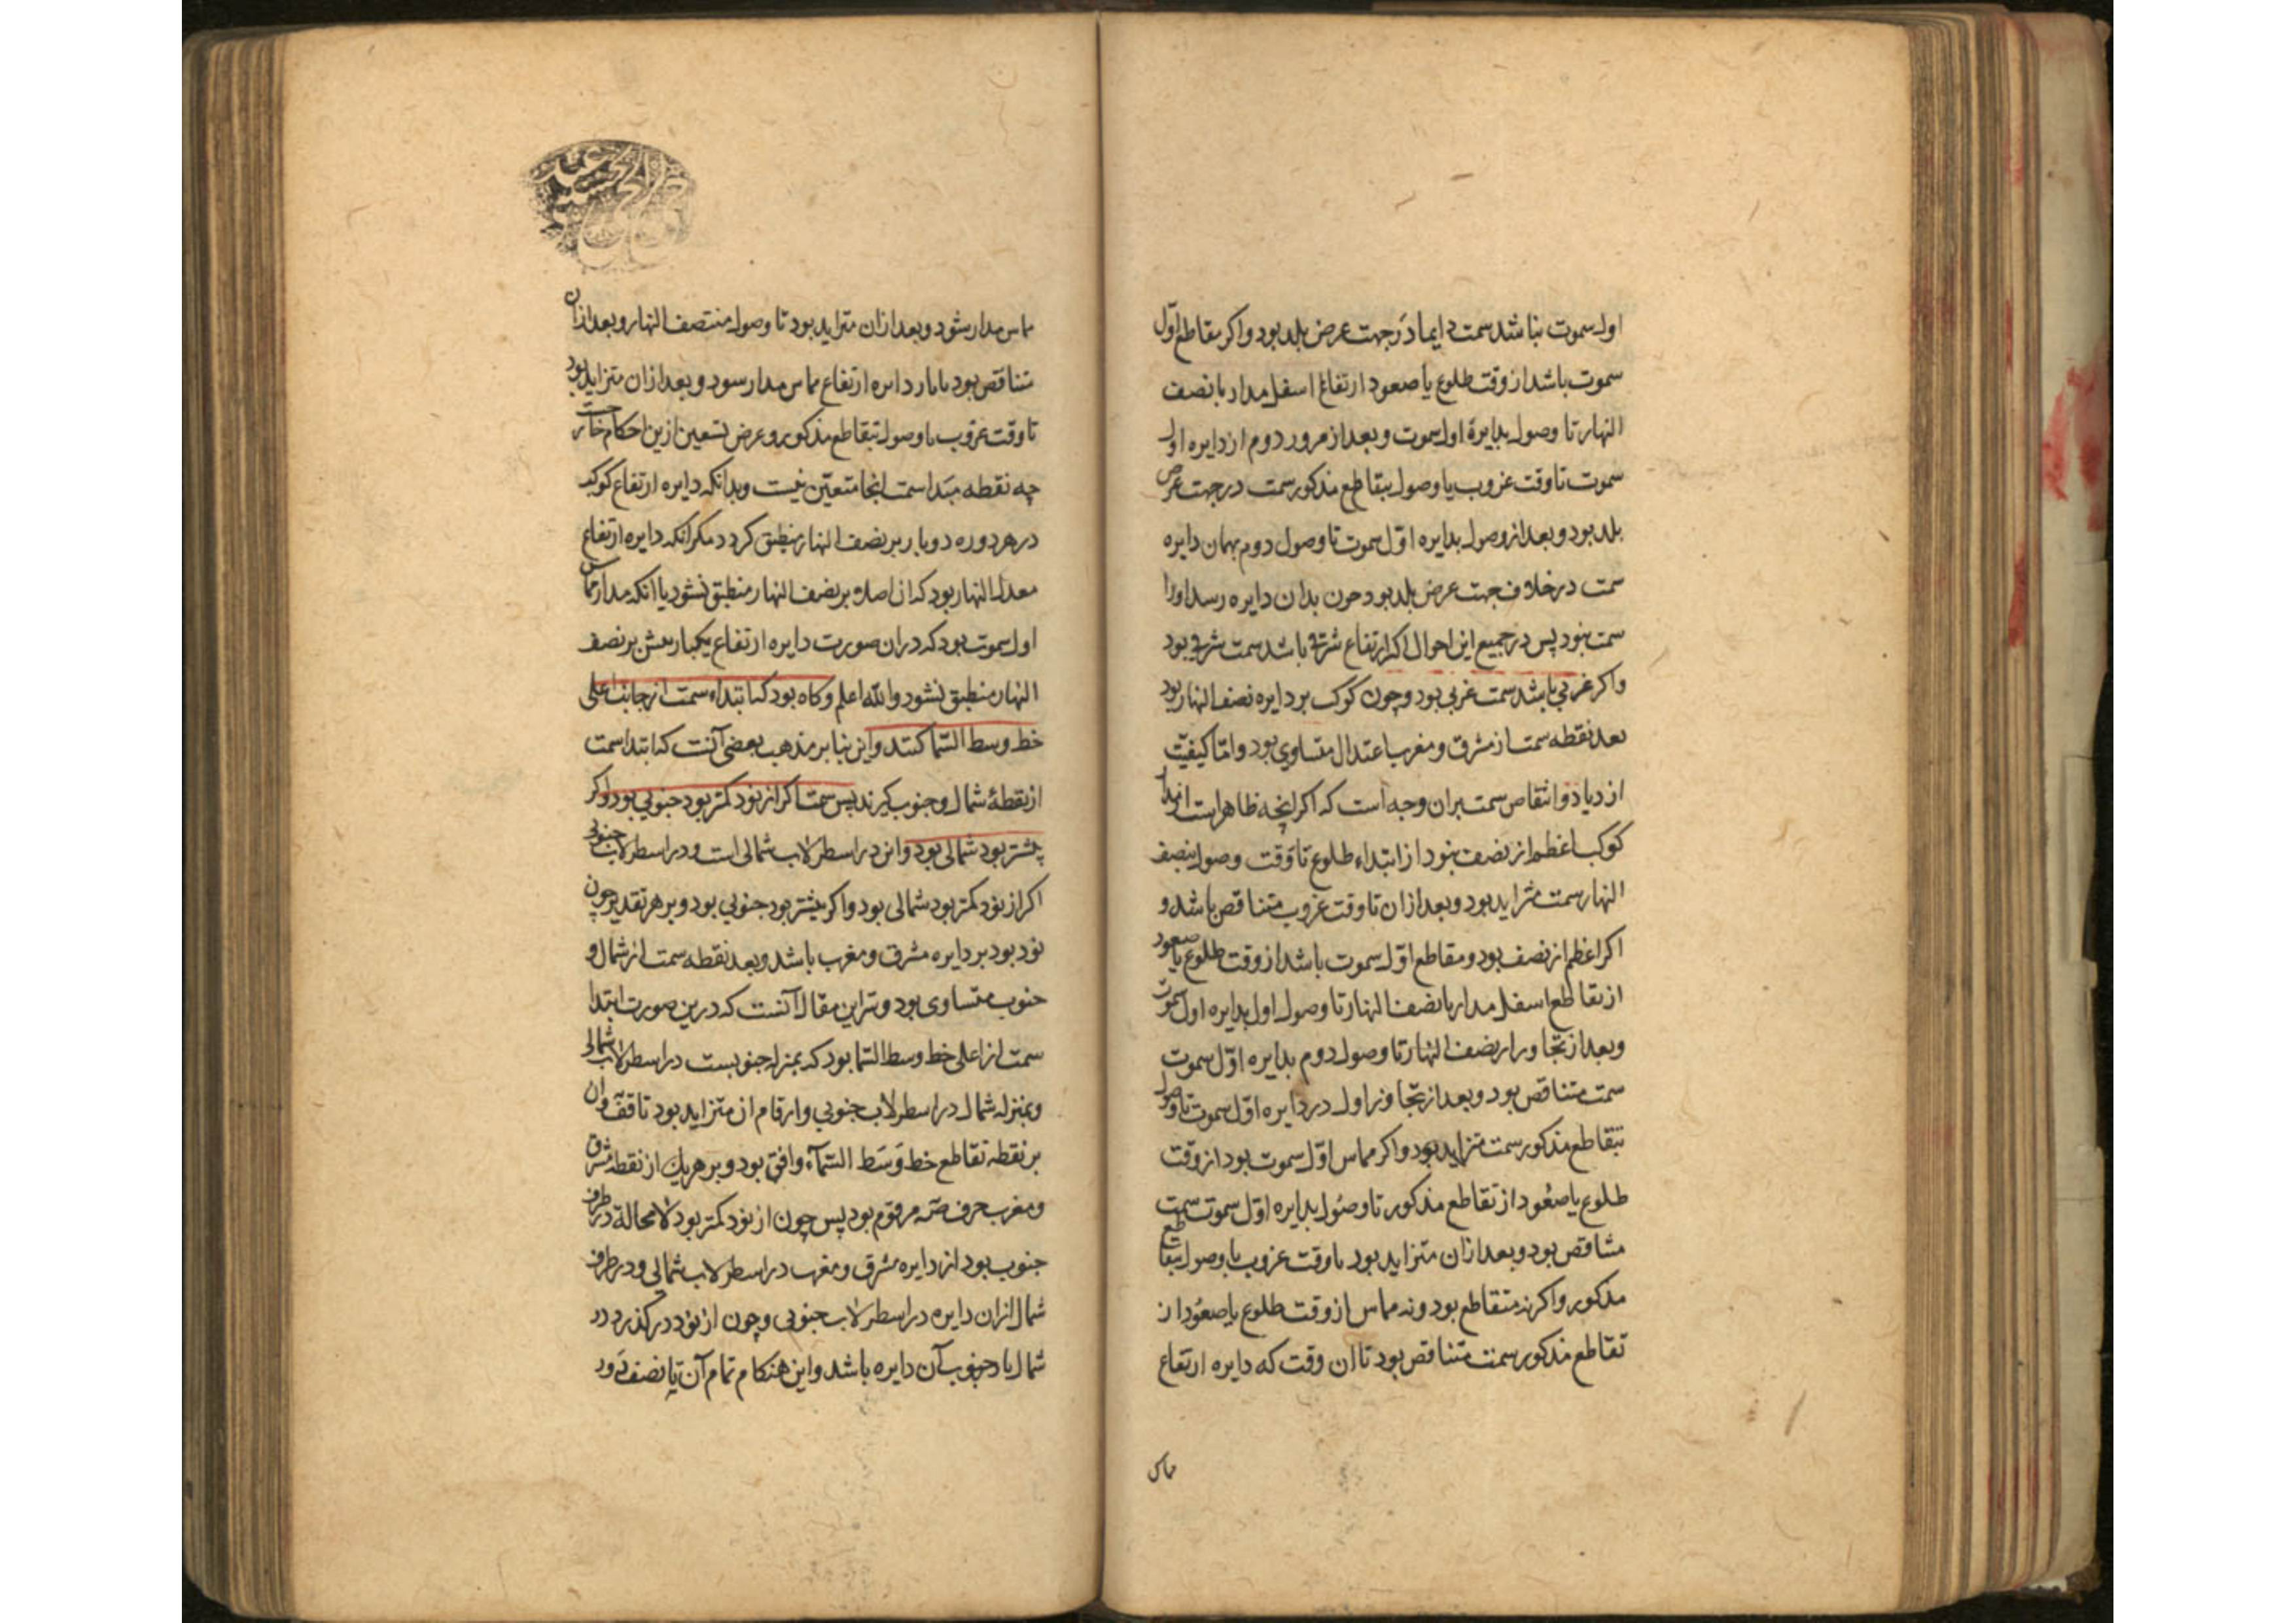 اول سموت نباشد سمت دایما در جهت عرض بلد بود واکر مقاطع اوّل
سموت باشد از وقت طلوع یا صعود ارتفاع اسفل مدار با نصف
النهار تا وصول بدایرهٔ اول سموت و بعد از مرور دوم از دایره اول
سموت تا وقت غروب یا وصول بتقاطع مذکور سمت در جهت عرض
بلد بود و بعد از وصول بدایره اوّل سموت تا وصول دوم بهمان دایره
سمت در خلاف جهت عرض بلد بود حون بدان دایره رسد اورا
سمت نبود پس در جمیع این احوال اکر ارتفاع شرقی باشد سمت شرقی بود
واکر غربی باشد سمت غربی بود وچون کوکب بر دایره نصف النهار بود
بعد نقطه سمت از مشرق و مغرب اعتدال متساوی بود وامّا کیفیّت
ازدیاد و انتقاص سمت بران وجه است که اکر انچه ظاهر است از مدار
کوکب اعظم از نصف نبود از ابتداء طلوع تا وقت وصول بنصف
النهار سمت متزاید بود و بعد ازان تا وقت غروب متناقص باشد و
اکر اعظم از نصف بود و مقاطع اوّل سموت باشد از وقت طلوع یا صعود
از تقاطع اسفل مدار با نصف النهار تا وصول اول بدایره اول سموت
و بعد از تجاوز از نصف النهار تا وصول دوم بدایره اوّل سموت
سمت متناقص بود و بعد از تجاوز اول در دایره اوّل سموت تا وصول
بتقاطع مذکور سمت متزاید بود واکر مماس اوّل سموت بود از وقت
طلوع یا صعُود از تقاطع مذکور تا وصُول بدایره اوّل سموت سمت
متناقص بود و بعد ازان متزاید بود تا وقت غروب یا وصول بتقاطع
مذکور واکر نه متقاطع بود و نه مماس از وقت طلوع یا صعُود از
تقاطع مذکور سمت متناقص بود تا ان وقت که دایره ارتفاع
مماس
مماس مدار شود و بعد ازان متزاید بود تا وصول منتصف النهار و بعد ازان
متناقص بود تا بار دایره ارتفاع مماس مدار سود و بعد ازان متزاید بود
تا وقت غروب یا وصول بتقاطع مذکور و عرض تسعین ازین احکام خارجست
چه نقطه مبَدا سمت انجا متعیّن نیست وبدانکه دایره ارتفاع کوکب
در هر دوره دو بار بر نصف النهار منطبق کردد مکر انکه دایره ارتفاع
معدل النهار بود که ان اصلا بر نصف النهار منطبق نشود یا انکه مدار مماس
اول سموت بود که دران صورت دایره ارتفاع یکبار بیش بر نصف
النهار منطبق نشود والله اعلم وکاه بود که ابتداء سمت از جانب اعلی
خط وسط السّما کنند واین بنا بر مذهب بعضی آنست که ابتدا سمت
از نقطهٔ شمال و جنوب کیرند پس سمت اکر از نود کمتر بود جنوبی بود واکر
بیشتر بود شمالی بود واین در اسطرلاب شمالی است ودر اسطرلاب جنوبی
اکر از نود کمتر بود شمالی بود واکر بیشتر بود جنوبی بود وبر هر تقدیر چون
نود بود بر دایره مشرق و مغرب باشد وبعد نقطه سمت از شمال و
جنوب متساوی بود وسّر این مقال آنست که درین صورت ابتدا
سمت از اعلی خط وسط السّما بود که بمنزله جنوبست در اسطرلاب شمالی
وبمنزله شمال در اسطرلاب جنوبی وارقام ان متزاید بود تا قف وان
بر نقطه تقاطع خط وَسَط السّمآء وافق بود وبر هریك از نقطه مشرق
ومغرب حرف صه مرقوم بود پس چون از نود کمتر بود لامحالة در طرف
جنوب بود از دایره مشرق ومغرب در اسطرلاب شمالی ودر طرف
شمال ازان دایره در اسطرلاب جنوبی وچون از نود در کذرد در
شمال یا جنوب آن دایره باشد واین هنکام تمام آن تا نصف دَور